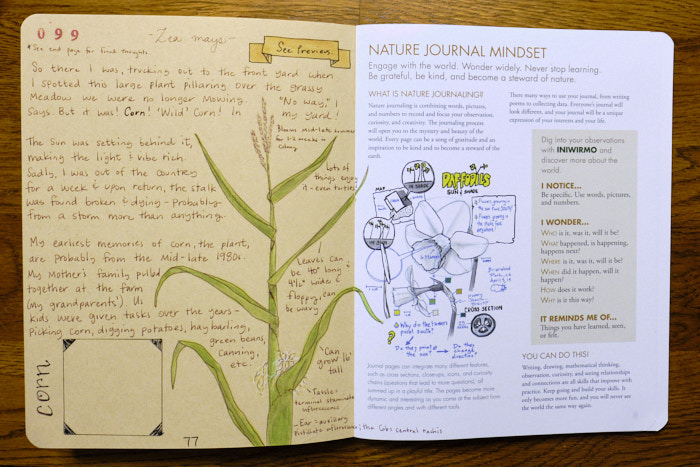 099
* See end page for final thoughts.
- Zea mays -
See Previous.
So there I was, trucking out to the front yard when
I spotted this large plant pillaring over the grassy
Meadow we were no longer Mowing.
"No way," I
Says. But it was! Corn! 'Wild' Corn! In
my yard!
Blooms mid-late summer
for 1-2 weeks in
The Sun was setting behind it,
making the light & vibe rich.
Sadly, I was out of the country
for a week & upon return, the stalk
was found broken & dying - Probably
from a storm more than anything.
Lots of
things enjoy
it - even turtles
My earliest memories of corn, the plant,
are probably from the Mid-late 1980s.
My Mother's family pulled
together at the farm
(my grandparents'). Us
kids were given tasks over the years -
Picking Corn, digging potatoes, hay baling,
green beans,
Canning,
etc.
Leaves can
be 40" long &
4½" wide &
floppy, can
be wavy
"Can
grow 16'
tall
corn
- Tassle =
terminal staminate
inflorescence
- Ear = auxiliary
Pistillate inflorescence; the Cobs central rachis
77
NATURE JOURNAL MINDSET
Engage with the world. Wonder widely. Never stop learning.
Be grateful, be kind, and become a steward of nature.
WHAT IS NATURE JOURNALING?
Nature journaling is combining words, pictures,
and numbers to record and focus your observation,
curiosity, and creativity. The journaling process
will open you to the mystery and beauty of the
world. Every page can be a song of gratitude and an
inspiration to be kind and to become a steward of the
earth.
There many ways to use your journal, from writing
poems to collecting data. Everyone's journal will
look different, and your journal will be a unique
expression of your interests and your life.
MAP
IN SHADE
DAFFODILS
SUN & SHADE
IN SUN
CROSS SECTION
? Why do the flowers
point south?
Do they point at
the sun?
Do they
change
direction?
Journal pages can integrate many different features,
such as cross sections, close-ups, icons, and curiosity
chains (questions that lead to more questions), all
summed up in a playful title. The pages become more
dynamic and interesting as you come at the subject from
different angles and with different tools.
Dig into your observations
with INIWIRMO and
discover more about the
world.
I NOTICE...
Be specific. Use words, pictures,
and numbers.
I WONDER...
WHO is it, was it, will it be?
WHAT happened, is happening,
happens next?
WHERE is it, was it, will it be?
WHEN did it happen, will it
happen?
HOW does it work?
WHY is it this way?
IT REMINDS ME OF...
Things you have learned, seen,
or felt.
YOU CAN DO THIS!
Writing, drawing, mathematical thinking,
observation, curiosity, and seeing relationships
and connections are all skills that improve with
practice. Keep going and build your skills. It
only becomes more fun, and you will never see
the world the same way again.